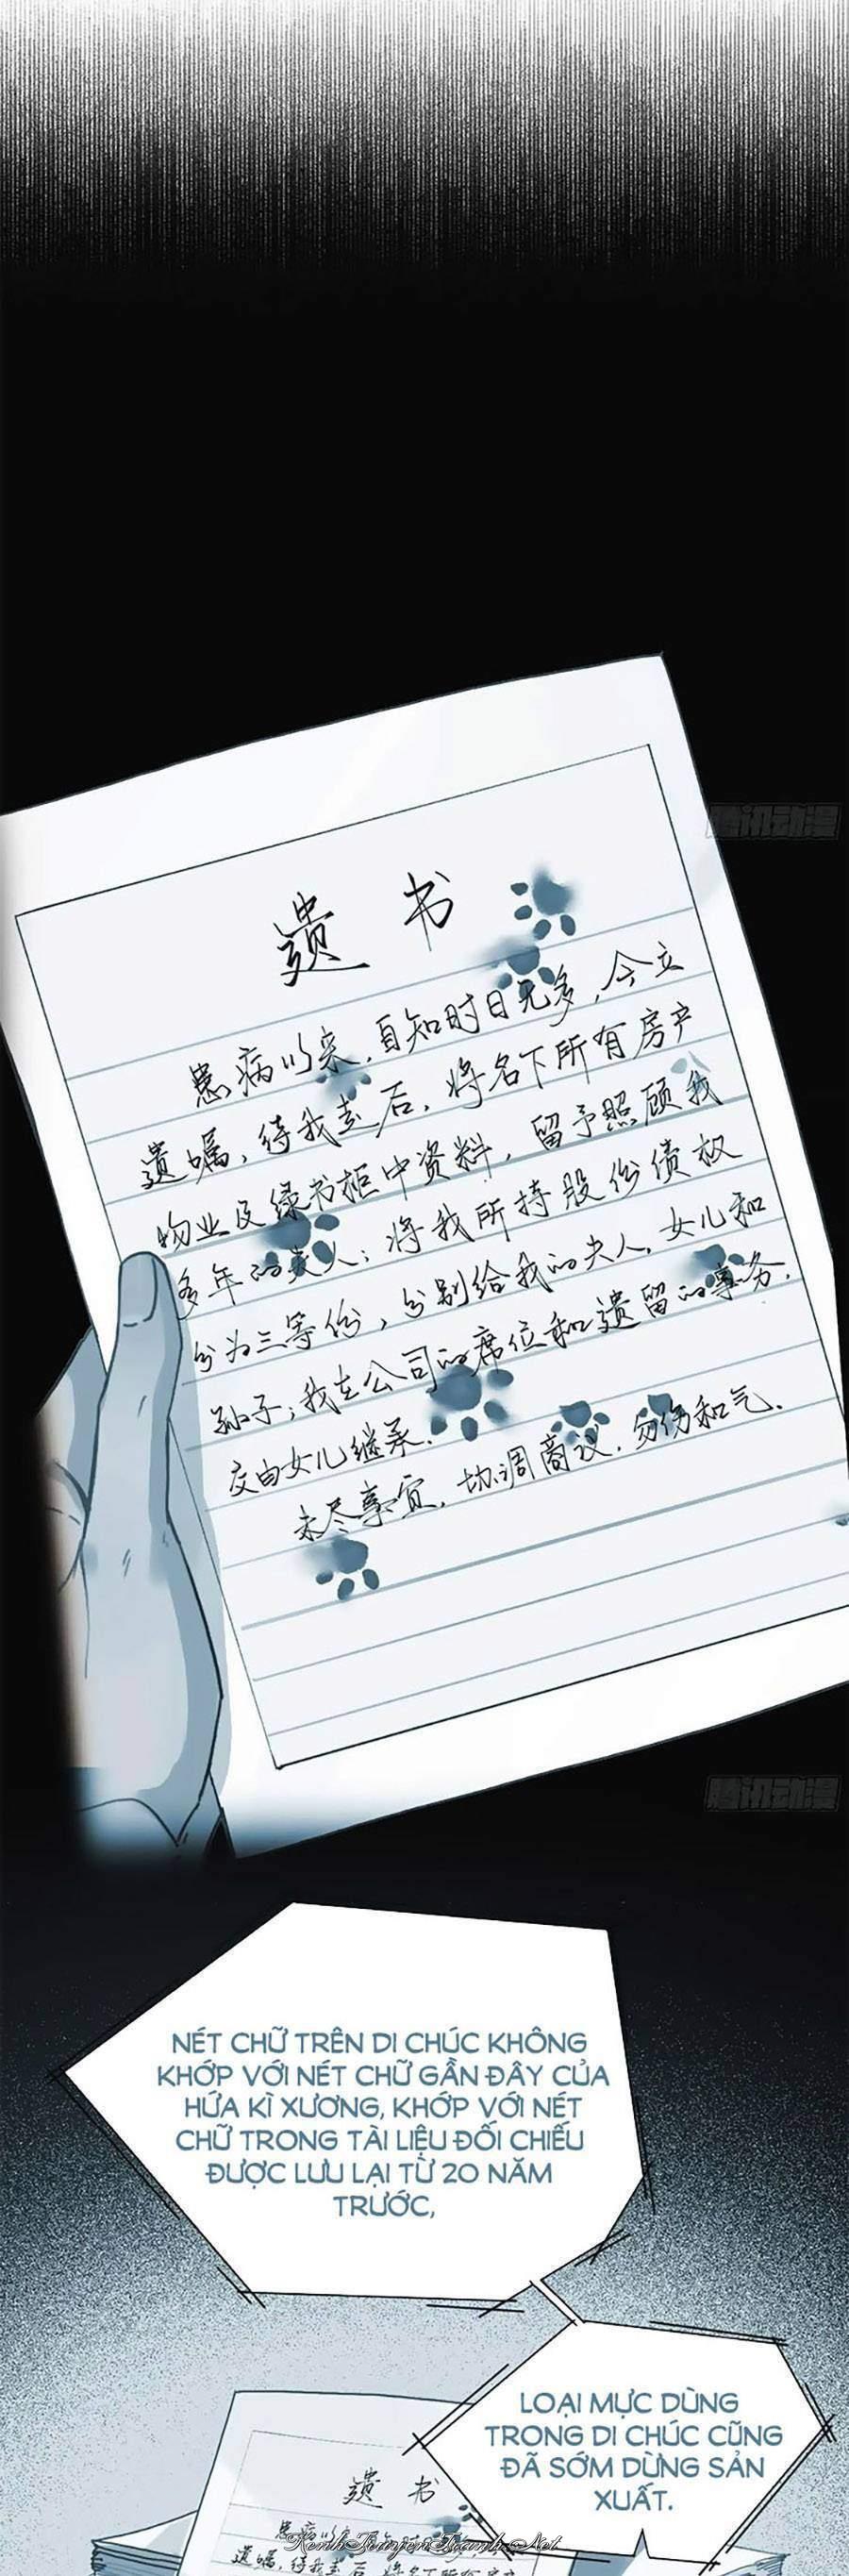 腾讯动漫
遗书
患病以来，自知时日无多，今立
遗嘱，待我去后，将名下所有房产
物业及绿书柜中资料，留予照顾我
多年的夫人；将我所持股份债权
分为三等份，分别给我的夫人，女儿和
孙子；我在公司的席位和遗留的事务，
交由女儿继承。
未尽事宜，协调商议，勿伤和气。
腾讯动漫
NÉT CHỮ TRÊN DI CHÚC KHÔNG
KHỚP VỚI NÉT CHỮ GẦN ĐÂY CỦA
HỨA KÌ XƯƠNG, KHỚP VỚI NÉT
CHỮ TRONG TÀI LIỆU ĐỐI CHIẾU
ĐƯỢC LƯU LẠI TỪ 20 NĂM
TRƯỚC,
LOẠI MỰC DÙNG
TRONG DI CHÚC CŨNG
ĐÃ SỚM DỪNG SẢN
XUẤT.
遗书
患病以来
遗嘱，待我去后，将名下所有房产
KenhTruyenTranh.Net